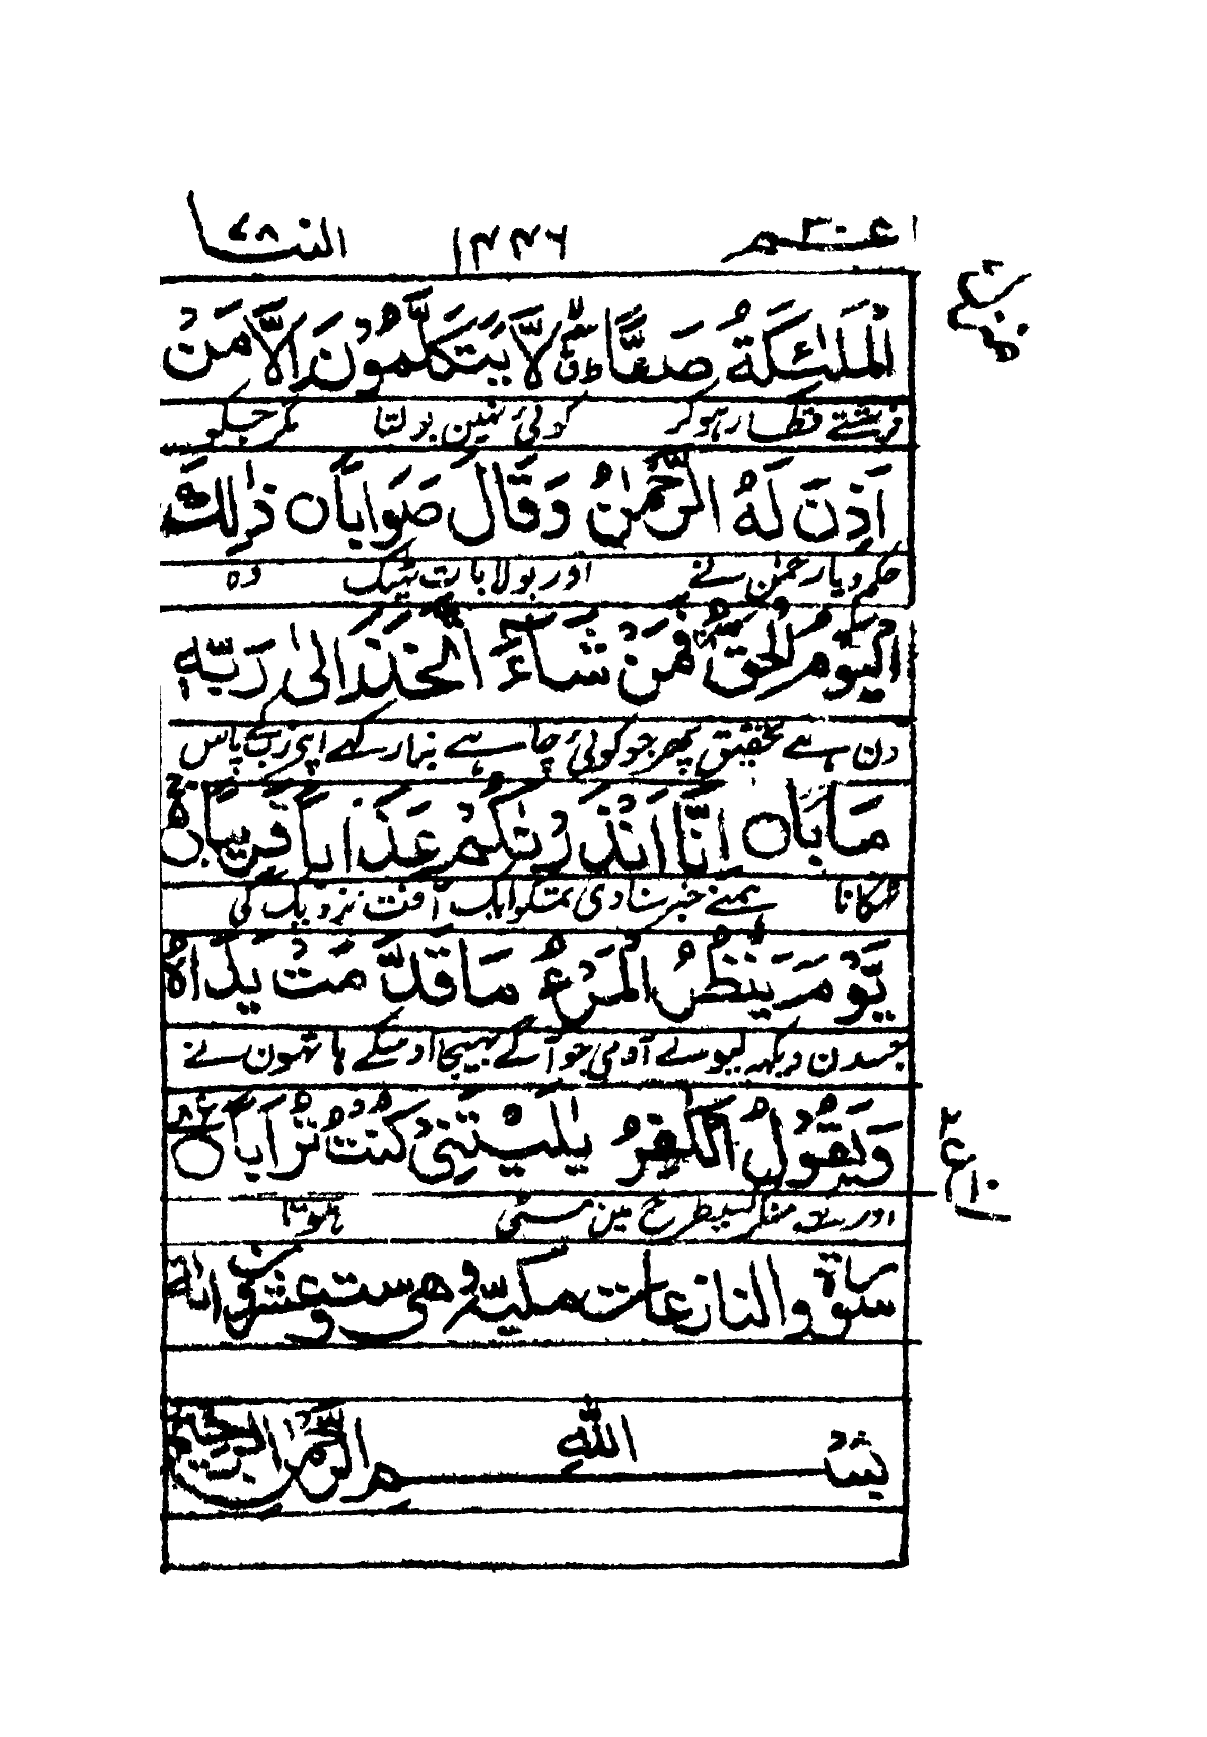 عم ٣٠ ١٤٤٦ النبا ٧٨
الْمَلٰٓئِكَةُ صَفًّا لَّا يَتَكَلَّمُوْنَ اِلَّا مَنْ
فرشتے قطار ہوکر کوئی نہین بولتا مگر جسکو
اَذِنَ لَهُ الرَّحْمٰنُ وَقَالَ صَوَابًا ○ ذٰلِكَ
حکم دیا رحمٰن نے اور بولا بات ٹھیک وہ
الْيَوْمُ الْحَقُّ فَمَنْ شَآءَ اتَّخَذَ اِلٰى رَبِّهٖ
دن ہے تحقیق پھر جو کوئی چاہے بنا رکھے اپنے رب کے پاس
مَاٰبًا ○ اِنَّا اَنْذَرْنٰكُمْ عَذَابًا قَرِيْبًا ○
ٹھکانا ہمنے خبر سنادی تمکو ایک آفت نزدیک کی
يَّوْمَ يَنْظُرُ الْمَرْءُ مَا قَدَّمَتْ يَدَاهُ
جسدن دیکھ لیوے آدمی جو آگے بھیجا اوسکے ہاتھون نے
وَيَقُوْلُ الْكٰفِرُ يٰلَيْتَنِيْ كُنْتُ تُرَابًا ○
اور کہے منکر کسیطرح مین مٹی ہوتا
سورة والنازعات مكية وهي ست و اية
بِسْمِ اللّٰهِ الرَّحْمٰنِ الرَّحِيْمِ